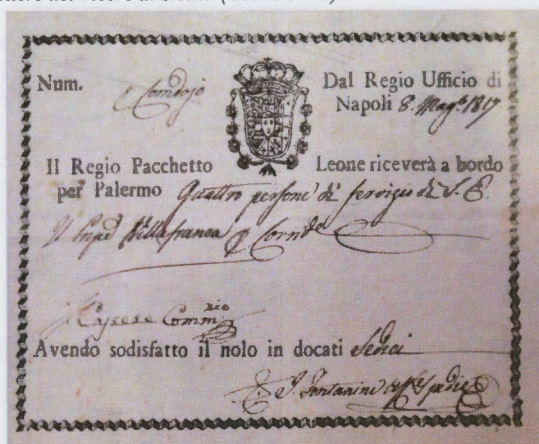 Num.
Dal Regio Ufficio di
Napoli 8. Mag.º 1817
Il Regio Pacchetto Leone riceverà a bordo
per Palermo Quattro persone di servizio di S. E.
Villafranca
Comm.rio
Avendo sodisfatto il nolo in docati Sedici